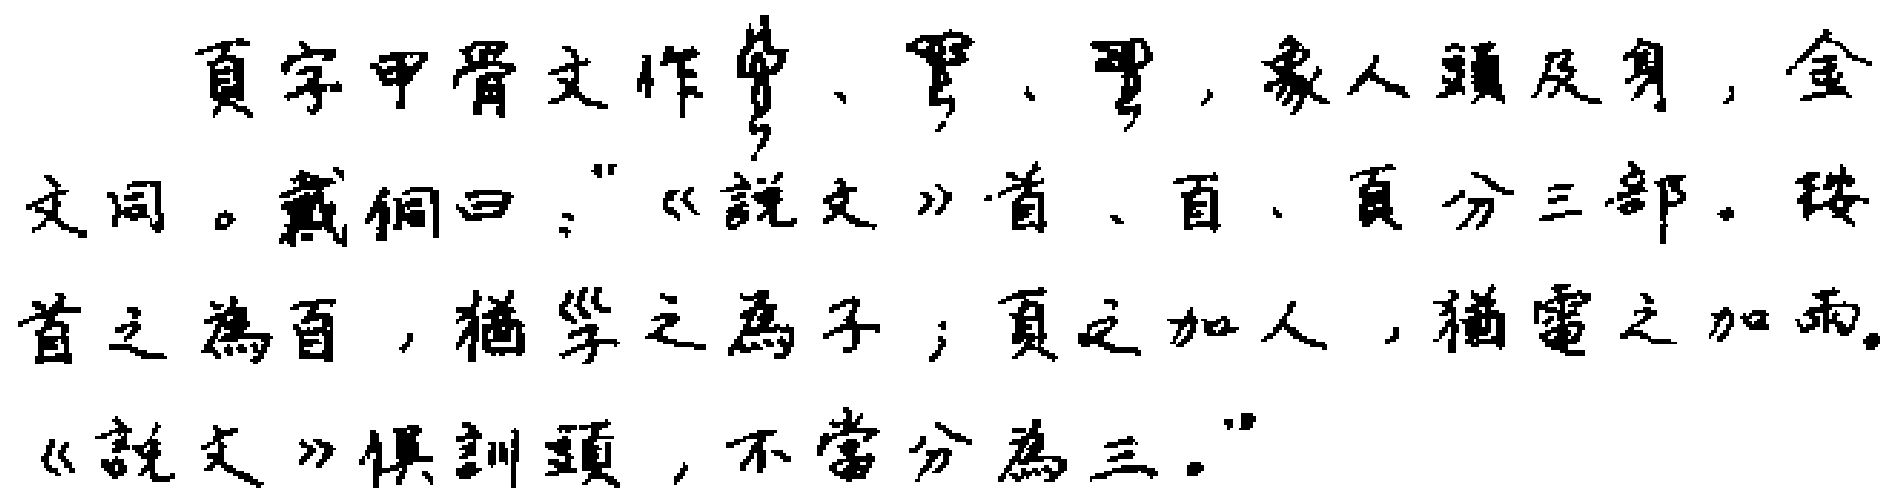 頁字甲骨文作、、,象人頭及身,金
文同。戴侗曰:“《説文》首、𦣻、頁分三部。按
首之為𦣻,猶𡿹之為子;頁之加人,猶電之加雨。
《説文》俱訓頭,不當分為三。”